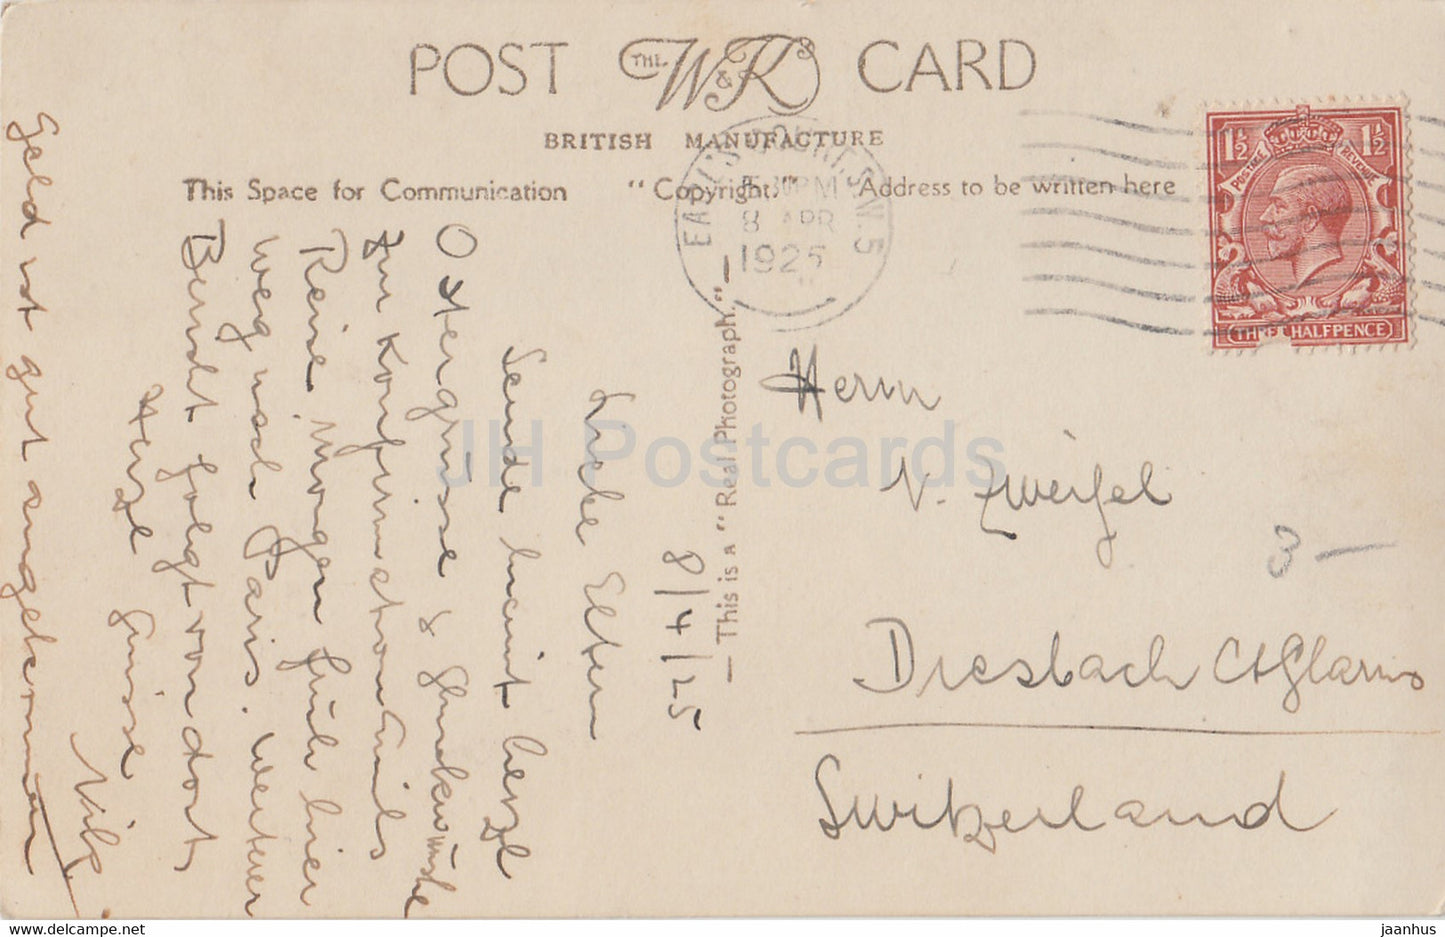 POST THE W & K'S CARD
BRITISH MANUFACTURE
This Space for Communication
"Copyright."
Address to be written here
8 APR
1925
POSTAGE REVENUE
1½ 1½
THREE HALFPENCE
— This is a "Real Photograph." —
8/4/25
Liebe Eltern
Sende hiemit herzl
Ostergrüsse & Glückwünsche
zur Konfirmation Emils
Reise morgen früh hier
weg nach Paris. Weiterer
Bericht folgt von dort
Herzl Grüsse
Geld ist gut angekommen
Herrn
N. Zweifel
Diesbach Ct Glarus
Switzerland
3 —
JH Postcards
www.delcampe.net
jaanhus